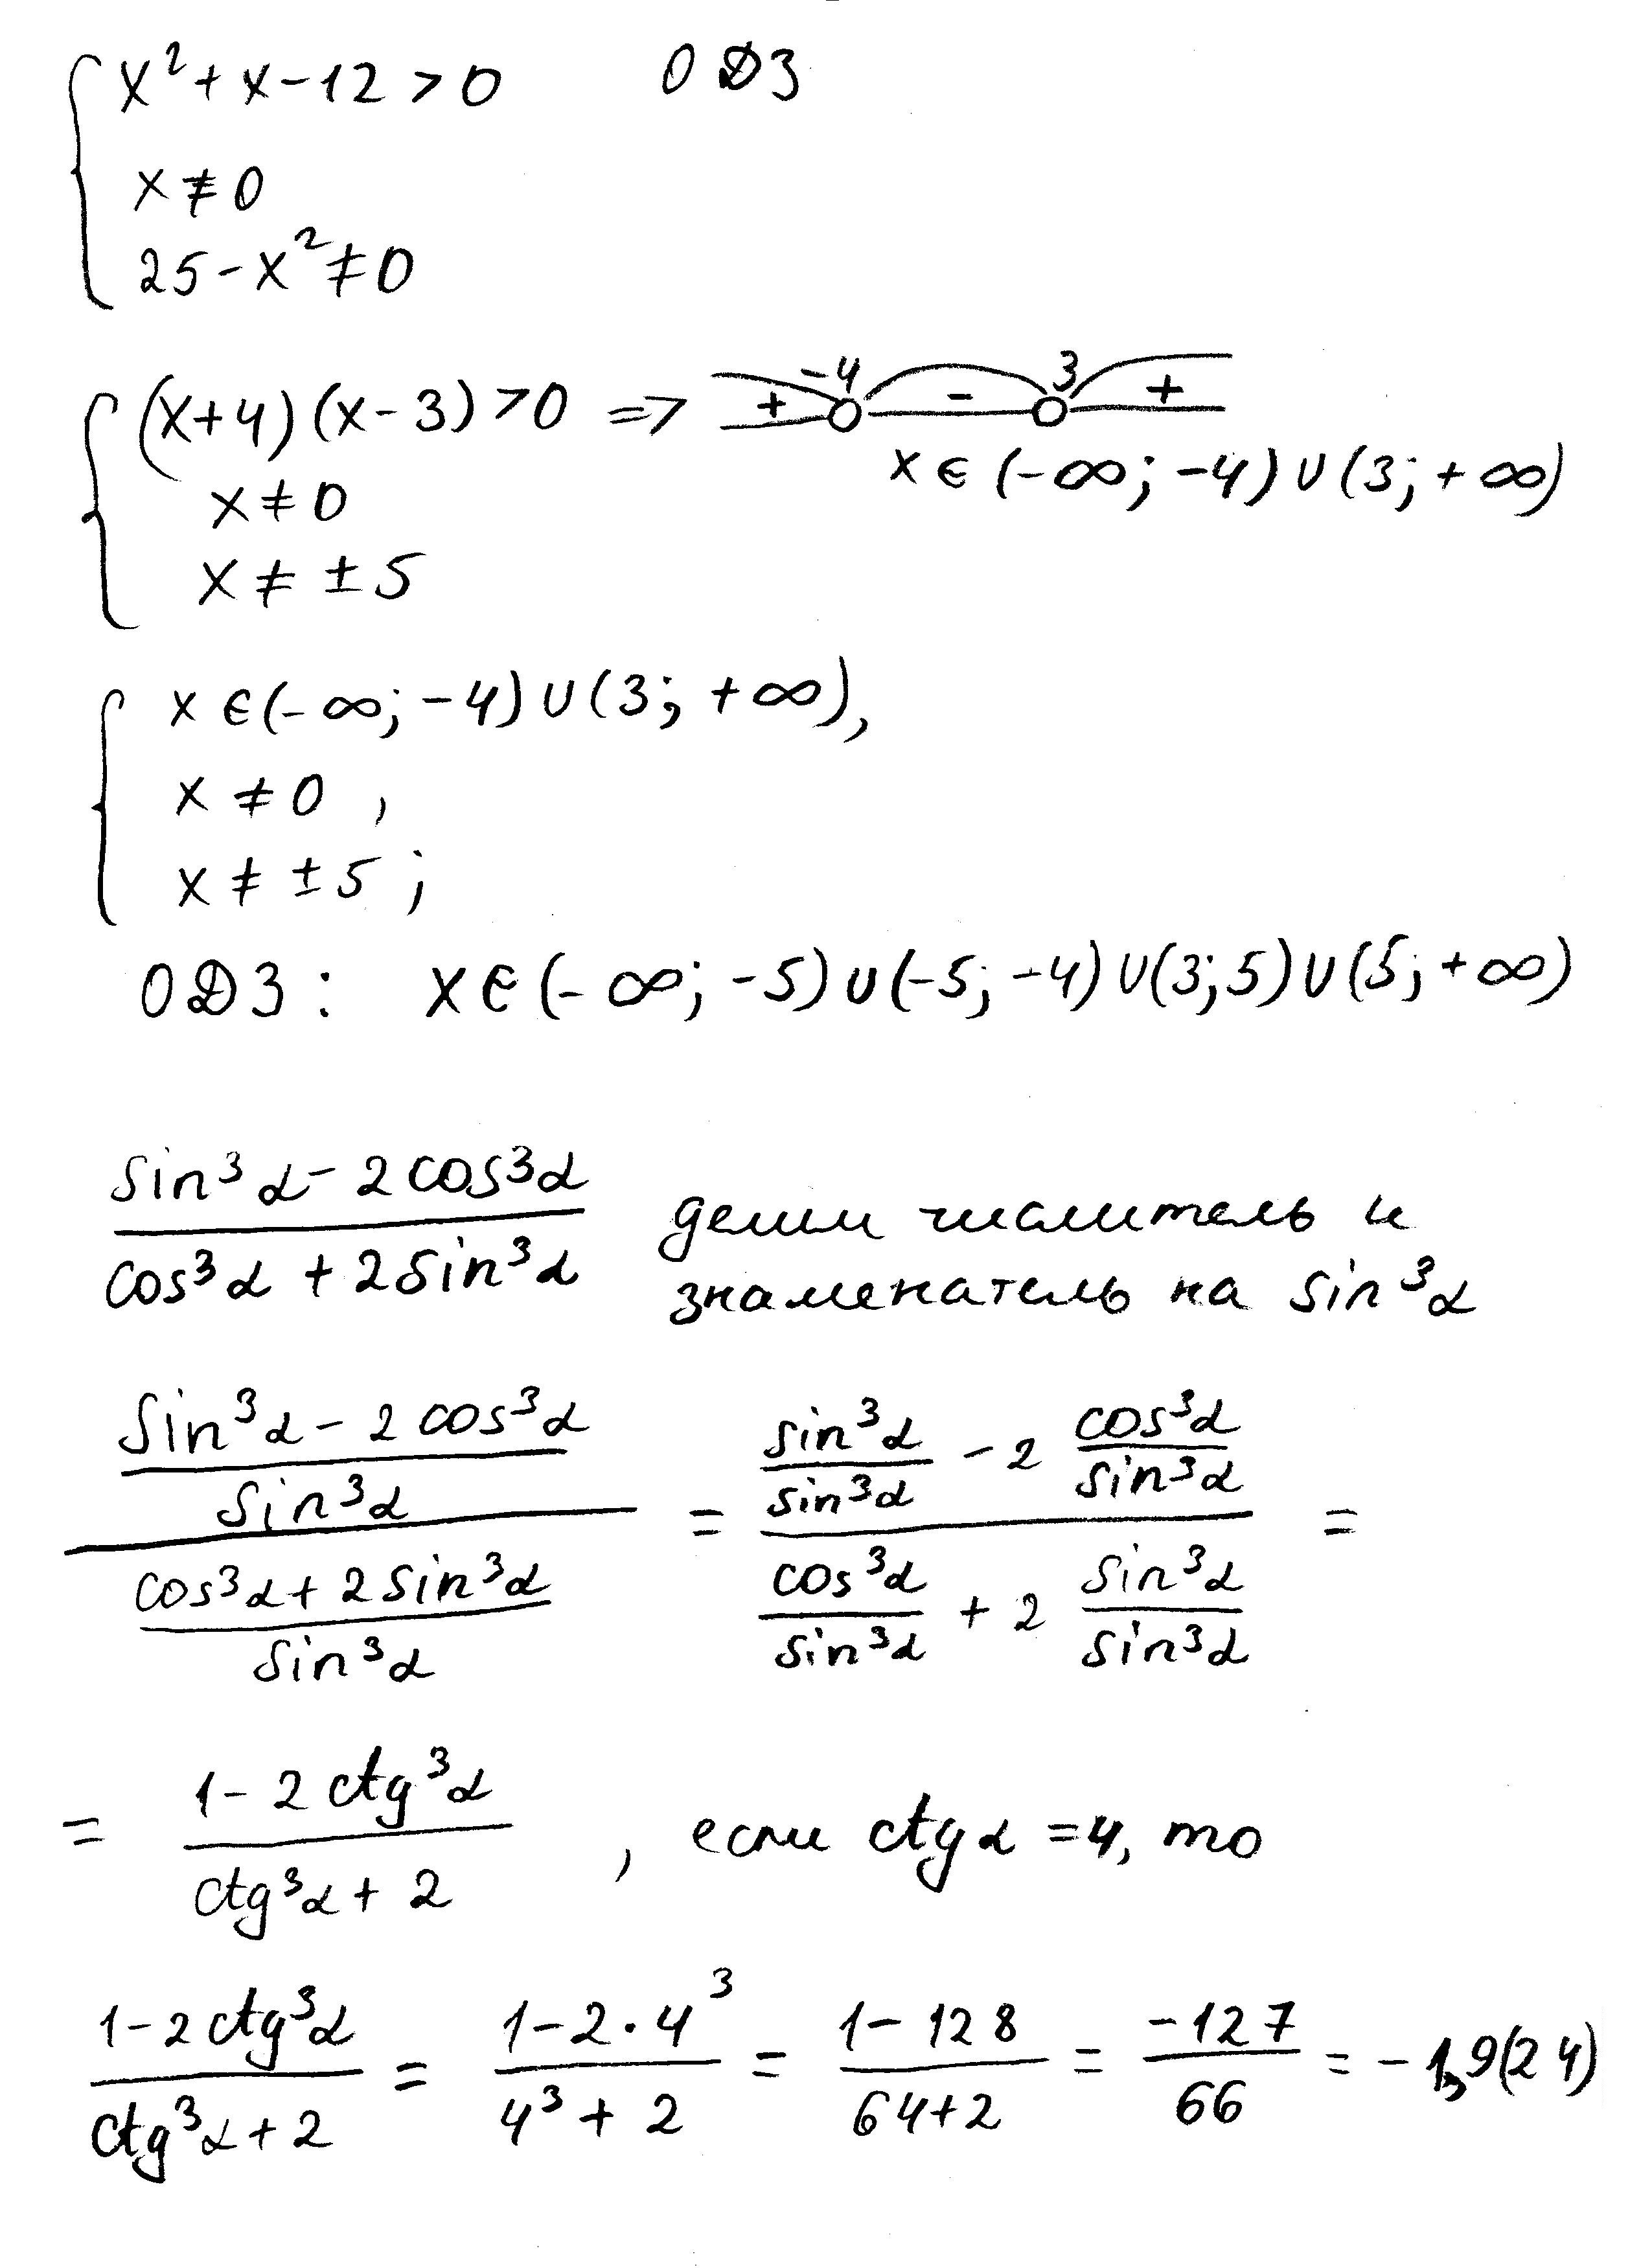 x² + x - 12 > 0 ОДЗ
x ≠ 0
25 - x² ≠ 0
(x+4)(x-3) > 0 => + -4 - 3 +
x ∈ (-∞; -4) ∪ (3; +∞)
x ≠ 0
x ≠ ± 5
x ∈ (-∞; -4) ∪ (3; +∞),
x ≠ 0 ,
x ≠ ± 5 ;
ОДЗ : x ∈ (-∞; -5) ∪ (-5; -4) ∪ (3; 5) ∪ (5; +∞)
(sin³α - 2cos³α)/(cos³α + 2sin³α) делим числитель и
знаменатель на sin³α
((sin³α - 2cos³α)/(sin³α))/((cos³α + 2sin³α)/(sin³α)) = (sin³α/sin³α - 2 cos³α/sin³α)/(cos³α/sin³α + 2 sin³α/sin³α) =
= (1 - 2ctg³α)/(ctg³α + 2) , если ctgα = 4, то
(1 - 2ctg³α)/(ctg³α + 2) = (1 - 2·4³)/(4³ + 2) = (1 - 128)/(64+2) = -127/66 = -1,9(24)